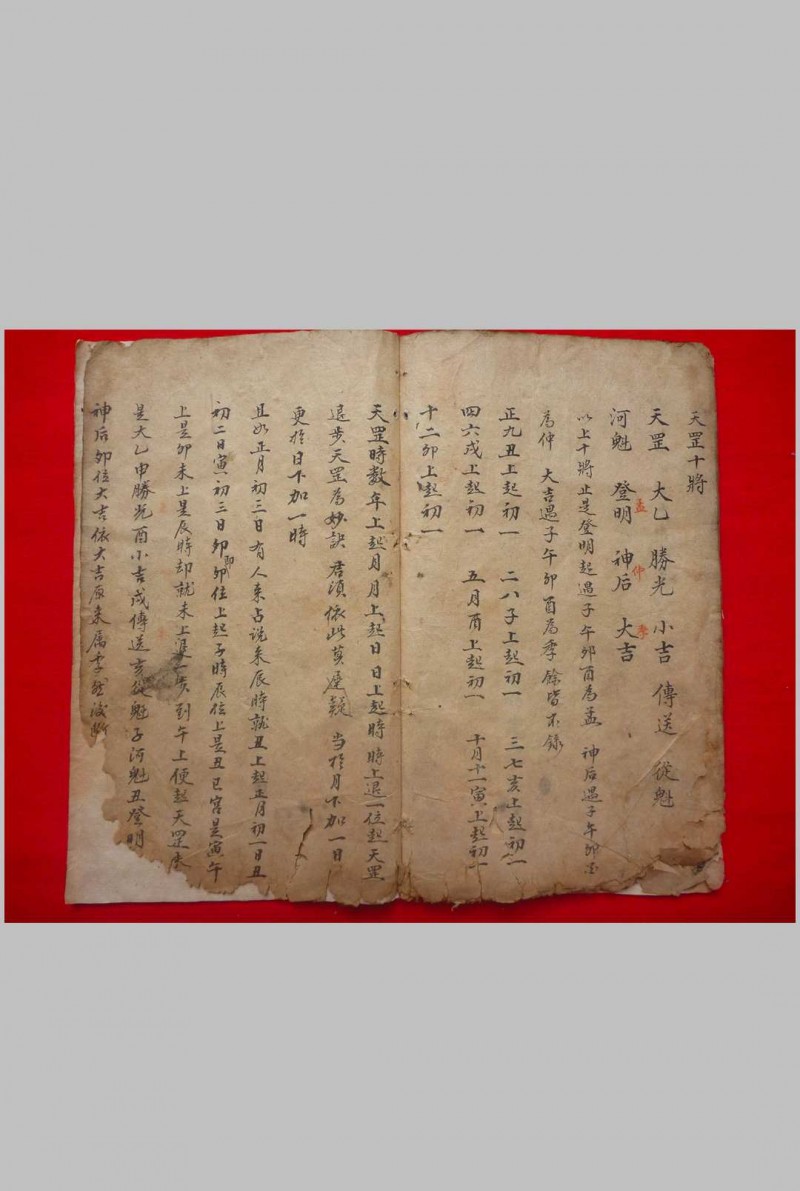 天罡十將
天罡 大乙 勝光 小吉 傳送 從魁
河魁 登明 神后 大吉
孟 仲 季
以上十將止是登明起遇子午卯酉為孟 神后遇子午卯酉
為仲 大吉遇子午卯酉為季餘皆不錄
正九丑上起初一 二八子上起初一 三七亥上起初一
四六戌上起初一 五月酉上起初一 十月十一寅上起初一
十二卯上起初一
天罡時数年上起月月上起日日上起時時上退一位起天罡
退步天罡為妙訣君須依此莫遲疑 当於月下加一日
更於日下加一時
且如正月初三日有人来占说来辰時就丑上起正月初一日丑
初二日寅初三日卯即卯位上起子時辰位上是丑巳宮是寅午
上是卯未上是辰時却就未上退一步到午上便起天罡未
是大乙申勝光酉小吉戌傳送亥從魁子河魁丑登明
神后卯位大吉依大吉原来属季然後断